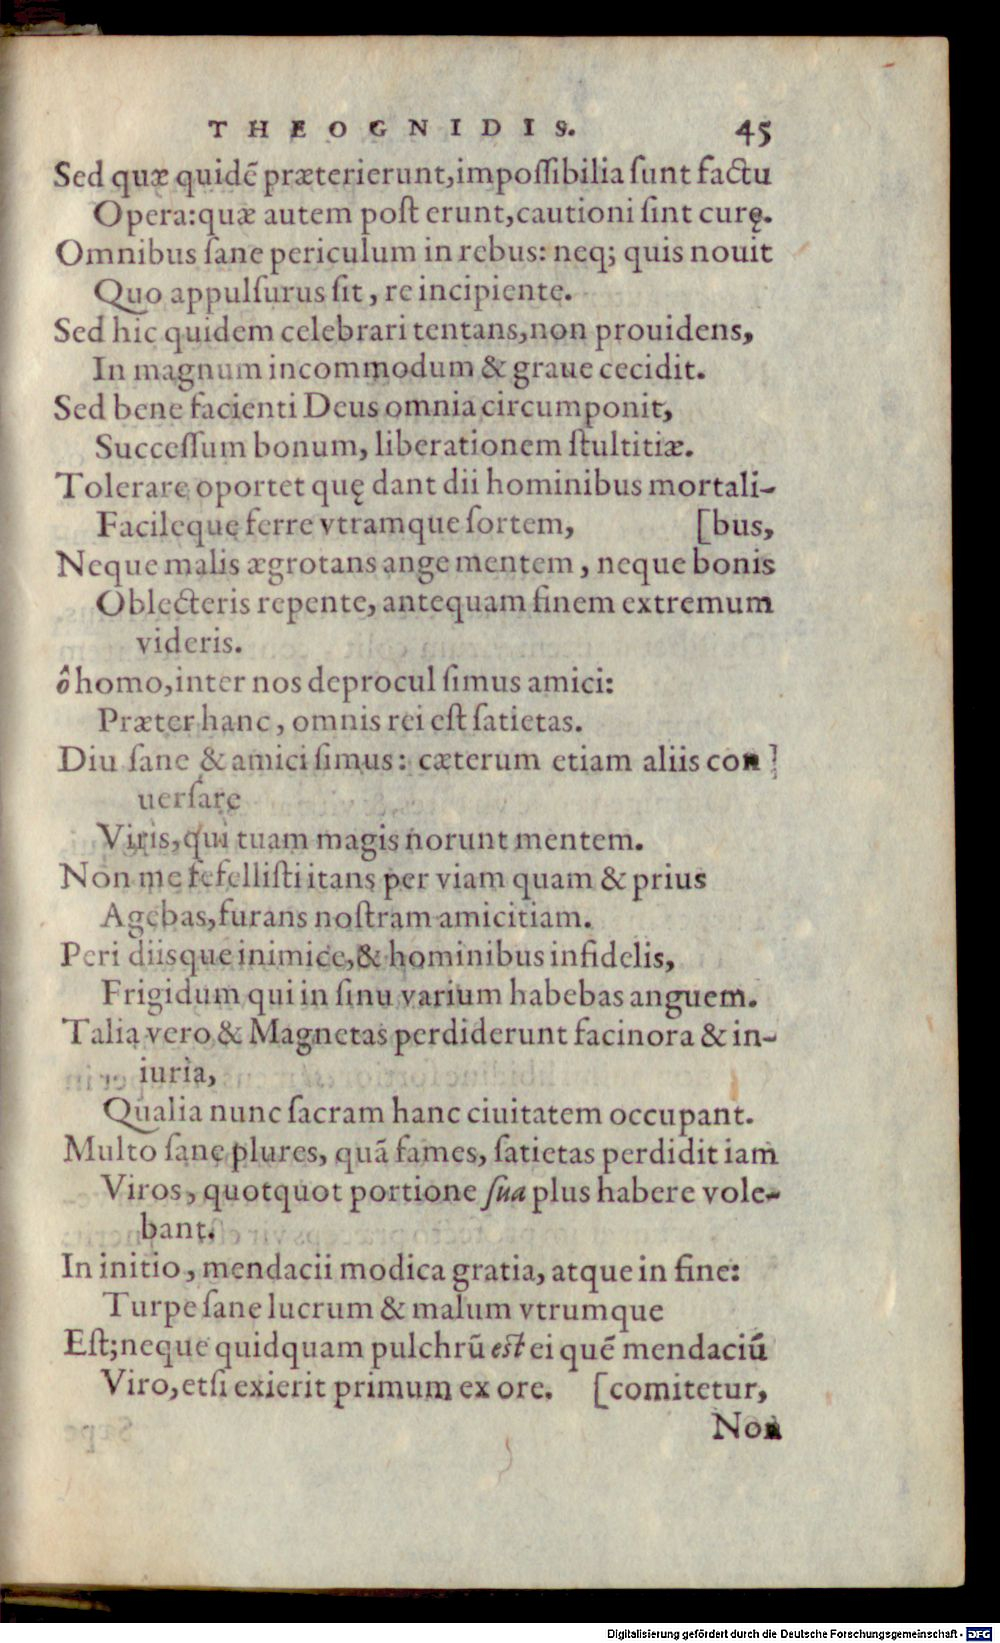 THEOGNIDIS. 45
Sed quæ quidẽ præterierunt, impoſſibilia ſunt factu
Opera: quæ autem poſt erunt, cautioni ſint curę.
Omnibus ſane periculum in rebus: neq; quis nouit
Quo appulſurus ſit, re incipiente.
Sed hic quidem celebrari tentans, non prouidens,
In magnum incommodum & graue cecidit.
Sed bene facienti Deus omnia circumponit,
Succeſſum bonum, liberationem ſtultitiæ.
Tolerare oportet quę dant dii hominibus mortali-
Facileque ferre vtramque ſortem, [bus,
Neque malis ægrotans ange mentem, neque bonis
Oblecteris repente, antequam finem extremum
videris.
ô homo, inter nos deprocul ſimus amici:
Præter hanc, omnis rei eſt ſatietas.
Diu ſane & amici ſimus: cæterum etiam aliis con
uerſare
Viris, qui tuam magis norunt mentem.
Non me fefelliſti itans per viam quam & prius
Agebas, furans noſtram amicitiam.
Peri diisque inimice, & hominibus infidelis,
Frigidum qui in ſinu varium habebas anguem.
Talia vero & Magnetas perdiderunt facinora & in-
iuria,
Qualia nunc ſacram hanc ciuitatem occupant.
Multo ſane plures, quã fames, ſatietas perdidit iam
Viros, quotquot portione ſua plus habere vole-
bant.
In initio, mendacii modica gratia, atque in fine:
Turpe ſane lucrum & malum vtrumque
Eſt; neque quidquam pulchrũ eſt ei quẽ mendaciũ
Viro, etſi exierit primum ex ore. [comitetur,
Non
Digitalisierung gefördert durch die Deutsche Forschungsgemeinschaft - DFG